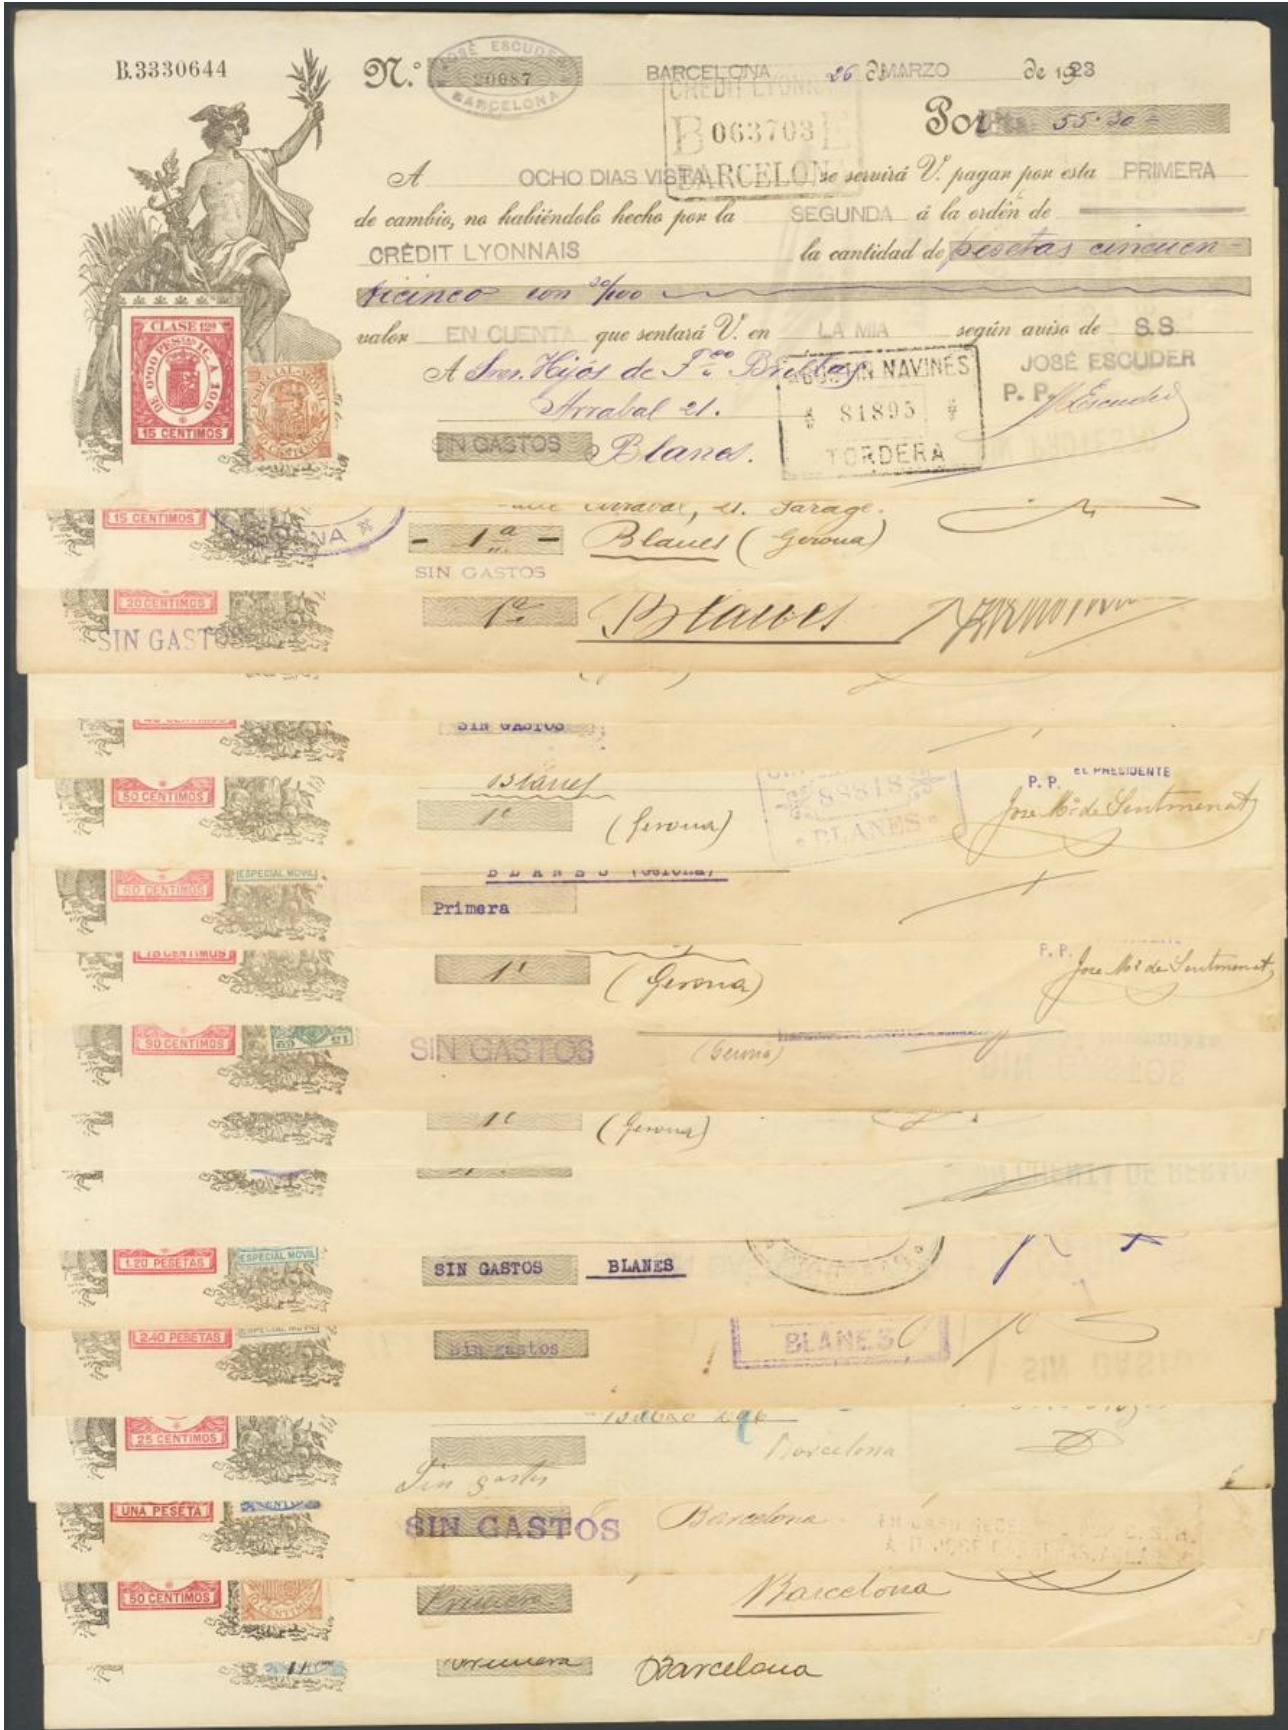 B.3330644
N.º 20087
JOSÉ ESCUDER
BARCELONA
BARCELONA 26 de MARZO de 1923
CRÉDIT LYONNAIS
B 063703 E
BARCELONA
Por Ptas. 55·30=
A OCHO DIAS VISTA se servirá V. pagar por esta PRIMERA
de cambio, no habiéndolo hecho por la SEGUNDA á la orden de
CRÉDIT LYONNAIS la cantidad de pesetas cincuen-
ticinco con 30/100
valor EN CUENTA que sentará V. en LA MIA según aviso de S.S.
CLASE 12ª
DE 0'10 PESETAS A 100
15 CENTIMOS
ESPECIAL MOVIL
10 CENTIMOS
A Sres. Hijos de Fco Brillas
Arrabal 21.
SIN GASTOS Blanes.
AGUSTIN NAVINÉS
81895
TORDERA
JOSÉ ESCUDER
P. P. Escuder
15 CENTIMOS
Arrabal, 21. Garage.
- 1ª - Blanes (Gerona)
SIN GASTOS
20 CENTIMOS
1ª Blanes
SIN GASTOS
SIN GASTOS
50 CENTIMOS
Blanes
1ª (Gerona)
88818
BLANES
EL PRESIDENTE
P. P.
Jose Mª de Sentmenat
60 CENTIMOS
ESPECIAL MOVIL
BLANES (Gerona)
Primera
75 CENTIMOS
1ª (Gerona)
P. P.
Jose Mª de Sentmenat
90 CENTIMOS
SIN GASTOS (Gerona)
1ª (Gerona)
1.20 PESETAS
ESPECIAL MOVIL
SIN GASTOS BLANES
2.40 PESETAS
ESPECIAL MOVIL
Sin gastos
BLANES
25 CENTIMOS
Barcelona
Sin gastos
UNA PESETA
SIN GASTOS Barcelona
50 CENTIMOS
10 CENTIMOS
Primera Barcelona
Primera Barcelona